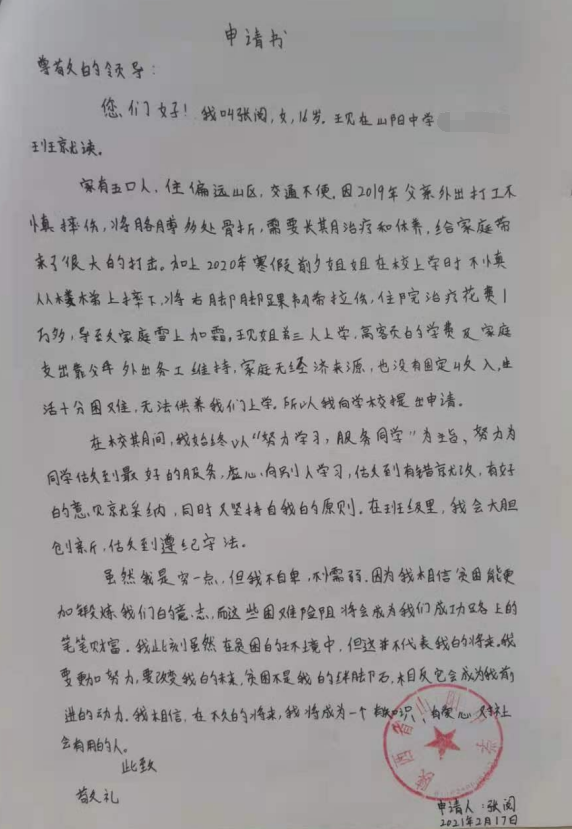 申请书
尊敬的领导：
您们好！我叫张阅，女，16岁，现在山阳中学
班就读。
家有五口人，住偏远山区，交通不便。因2019年父亲外出打工不
慎摔伤，将胳膊多处骨折，需要长期治疗和休养，给家庭带
来了很大的打击。加上2020年寒假前夕姐姐在校上学时不慎
从楼梯上摔下，将右脚脚踝韧带拉伤，住院治疗花费1
万多，导致家庭雪上加霜。现姐弟三人上学，高额的学费及家庭
支出靠父母外出务工维持，家庭无经济来源，也没有固定收入，生
活十分困难，无法供养我们上学。所以我向学校提出申请。
在校其期间，我始终以“努力学习，服务同学”为主旨、努力为
同学做到最好的服务，虚心向别人学习，做到有错就改，有好
的意见就采纳，同时又坚持自我的原则。在班级里，我会大胆
创新，做到遵纪守法。
虽然我是穷一点，但我不自卑，不懦弱。因为我相信贫困能更
加锻炼我们的意志，而这些困难险阻将会成为我们成功路上的
笔笔财富。我此刻虽然在贫困的环境中，但这并不代表我的将来。我
要更加努力，要改变我的未来，贫困不是我的绊脚石，相反它会成为我前
进的动力。我相信，在不久的将来，我将成为一个有知识，有爱心，对社
会有用的人。
此致
敬礼
陕西省山阳中学
申请人：张阅
2021年2月17日